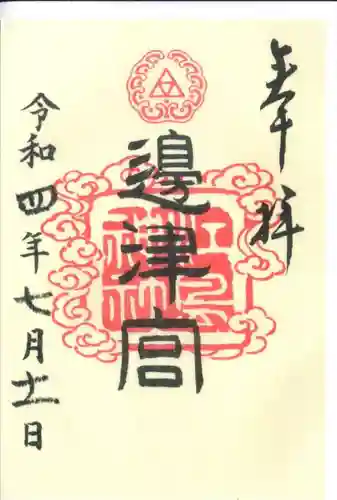 奉拝
邊津宮
令和四年七月十一日